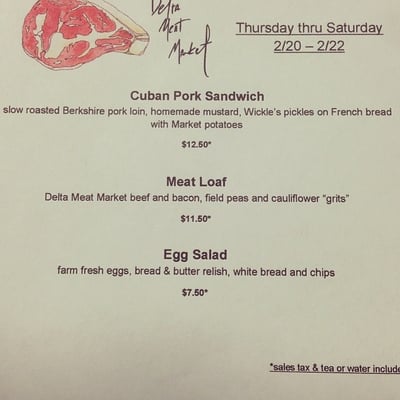 Delta
Meat
Market
Thursday thru Saturday
2/20 – 2/22
Cuban Pork Sandwich
slow roasted Berkshire pork loin, homemade mustard, Wickle's pickles on French bread
with Market potatoes
$12.50*
Meat Loaf
Delta Meat Market beef and bacon, field peas and cauliflower “grits”
$11.50*
Egg Salad
farm fresh eggs, bread & butter relish, white bread and chips
$7.50*
*sales tax & tea or water include